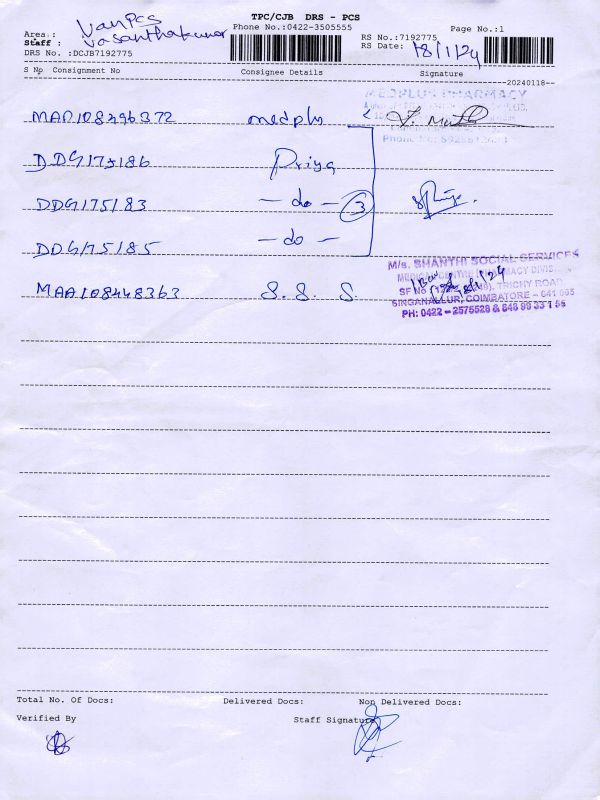 TPC/CJB DRS - PCS
Phone No.:0422-3505555
Page No.:1
Area.: Van PCS
Staff : Vasanthakumar
RS No.:7192775
RS Date: 18/1/24
DRS No. :DCJB7192775
S No Consignment No Consignee Details Signature
20240118
MEDPLUS PHARMACY
MAA108296372 medplus
DDG175186 Priya
DDG175183 - do - 3
DDG175185 - do -
M/s. SHANTHI SOCIAL SERVICES
MEDICAL CENTRE PHARMACY DIVIS
MAA108448363 S. S. S.
TRICHY ROAD
SINGANALLUR, COIMBATORE - 641 005
PH: 0422 - 2575528 &
Total No. Of Docs: Delivered Docs: Non Delivered Docs:
Verified By Staff Signature